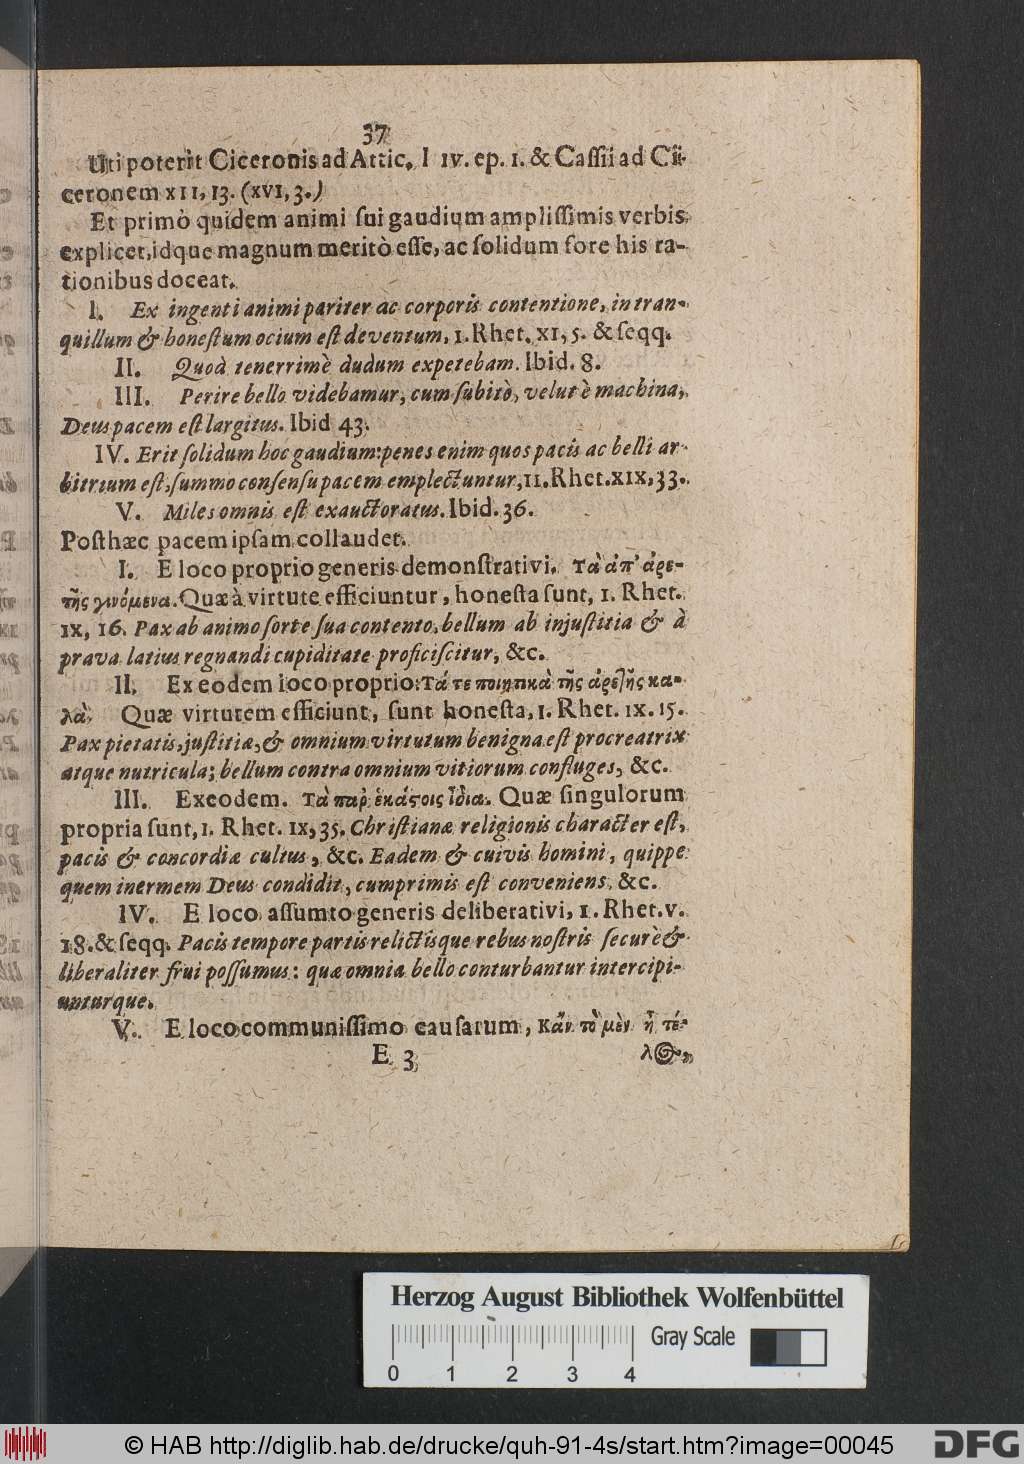 37
Uti poterit Ciceronis ad Attic. l IV. ep. 1. & Cassii ad Ci-
ceronem XII, 13. (XVI, 3.)
Et primò quidem animi sui gaudium amplissimis verbis
explicet, idque magnum meritò esse, ac solidum fore his ra-
tionibus doceat.
I. Ex ingenti animi pariter ac corporis contentione, in tran-
quillum & honestum ocium est deventum, 1. Rhet. XI, 5. & seqq.
II. Quòd tenerrimè dudum expetebam. Ibid. 8.
III. Perire bello videbamur, cum subitò, velut è machina,
Deus pacem est largitus. Ibid 43.
IV. Erit solidum hoc gaudium: penes enim quos pacis ac belli ar-
bitrium est, summo consensu pacem emplectuntur, 11. Rhet. XIX, 33.
V. Miles omnis est exauctoratus. Ibid. 36.
Posthæc pacem ipsam collaudet.
I. E loco proprio generis demonstrativi. Τὰ ἀπ' ἀρε-
τῆς γινόμενα. Quæ à virtute efficiuntur, honesta sunt, 1. Rhet.
IX, 16. Pax ab animo sorte sua contento, bellum ab injustitia & à
prava latius regnandi cupiditate proficiscitur, &c.
II. Ex eodem loco proprio: Τά τε ποιητικὰ τῆς ἀρετῆς κα-
λὰ. Quæ virtutem efficiunt, sunt honesta, 1. Rhet. IX. 15.
Pax pietatis, justitiæ, & omnium virtutum benigna est procreatrix
atque nutricula; bellum contra omnium vitiorum confluges, &c.
III. Ex eodem. Τὰ παρ' ἑκάστοις ἴδια. Quæ singulorum
propria sunt, 1. Rhet. IX, 35. Christianæ religionis character est,
pacis & concordiæ cultus, &c. Eadem & cuivis homini, quippe
quem inermem Deus condidit, cumprimis est conveniens, &c.
IV. E loco assumto generis deliberativi, 1. Rhet. V.
18. & seqq. Pacis tempore partis relictisque rebus nostris securè &
liberaliter frui possumus: quæ omnia bello conturbantur intercipi-
unturque.
V. E loco communissimo causarum, Κἂν τὸ μὲν ᾖ τέ-
E 3 λος,
Herzog August Bibliothek Wolfenbüttel
Gray Scale
0 1 2 3 4
© HAB http://diglib.hab.de/drucke/quh-91-4s/start.htm?image=00045
DFG